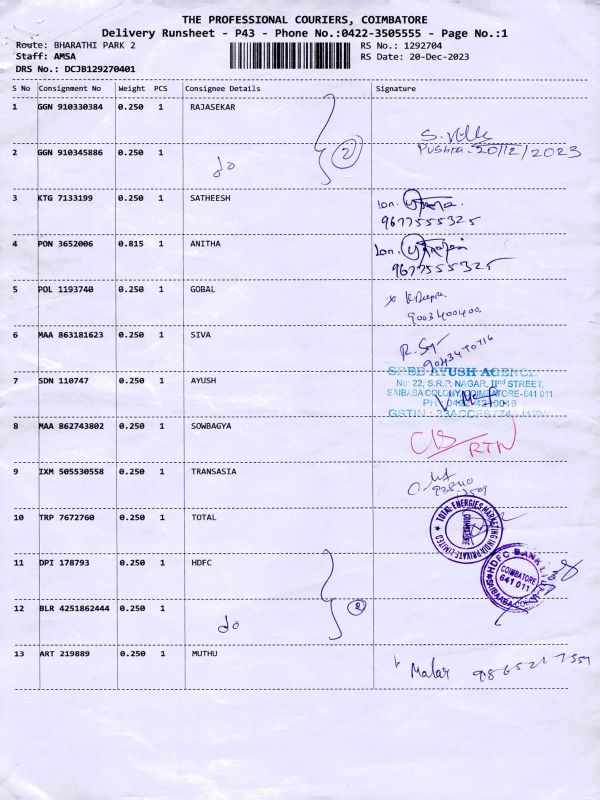 THE PROFESSIONAL COURIERS, COIMBATORE
Delivery Runsheet - P43 - Phone No.:0422-3505555 - Page No.:1
Route: BHARATHI PARK 2 RS No.: 1292704
Staff: AMSA RS Date: 20-Dec-2023
DRS No.: DCJB129270401
S No Consignment No Weight PCS Consignee Details Signature
1 GGN 910330384 0.250 1 RAJASEKAR
2 Pushpa. 20/12/2023
2 GGN 910345886 0.250 1 do
3 KTG 7133199 0.250 1 SATHEESH
9677555325
4 PON 3652006 0.815 1 ANITHA
9677555325
5 POL 1193740 0.250 1 GOBAL
9003400400
6 MAA 863181623 0.250 1 SIVA
SREE AYUSH AGENC
7 SDN 110747 0.250 1 AYUSH No: 22, S.R.P. NAGAR, IInd STREET,
SAIBABA COLONY, COIMBATORE-641 011
8 MAA 862743802 0.250 1 SOWBAGYA
RTN
9 IXM 505530558 0.250 1 TRANSASIA
10 TRP 7672760 0.250 1 TOTAL TOTAL ENERGIES MARKETING INDIA PRIVATE LIMITED
COIMBATORE
11 DPI 178793 0.250 1 HDFC HDFC BANK
COIMBATORE
641 011
12 BLR 4251862444 0.250 1 do 2
13 ART 219889 0.250 1 MUTHU Malar